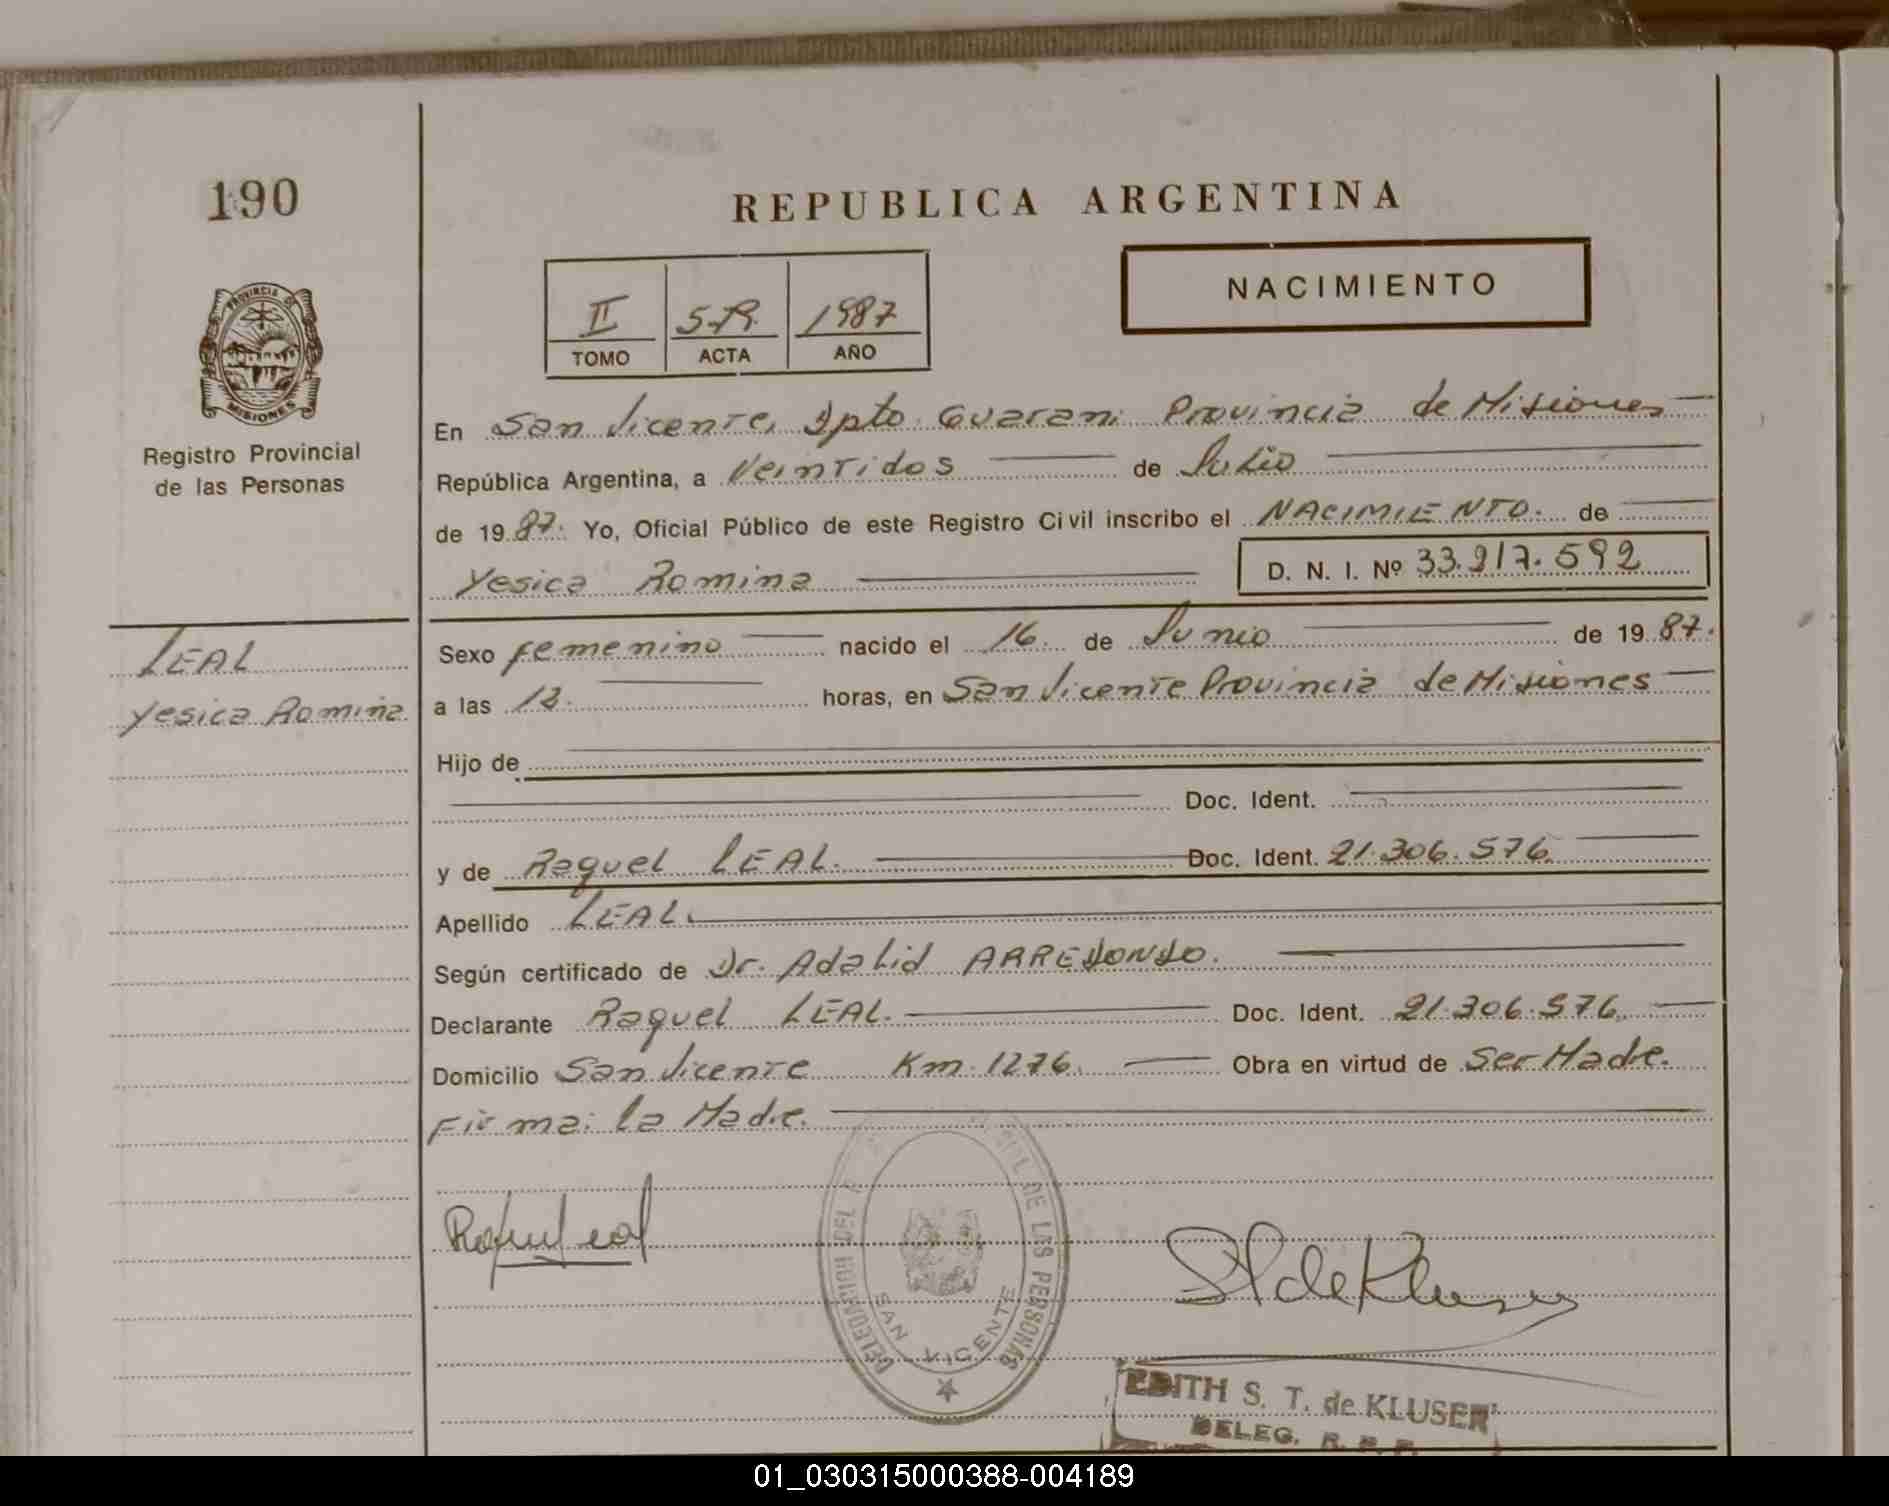 190
REPUBLICA ARGENTINA
NACIMIENTO
II 1987
TOMO ACTA AÑO
PROVINCIA DE
MISIONES
Registro Provincial
de las Personas
En San Vicente, Dpto. Guarani Provincia de Misiones
República Argentina, a Veintidos de Julio
de 1987. Yo, Oficial Público de este Registro Civil inscribo el NACIMIENTO. de
Yesica Romina D. N. I. Nº 33.217.592
LEAL
Yesica Romina
Sexo femenino nacido el 16. de Junio de 1987.
a las horas, en San Vicente Provincia de Misiones
Hijo de
Doc. Ident.
y de Raquel LEAL. Doc. Ident. 21.306.576.
Apellido LEAL.
Según certificado de Dr. Adalid ARREDONDO.
Declarante Raquel LEAL. Doc. Ident. 21.306.576.
Domicilio San Vicente Km. 1276. Obra en virtud de Ser Madre.
Firma: la Madre.
Raquel Leal
DELEGACION DEL DE LAS PERSONAS
SAN VICENTE
de Kluser
EDITH S. T. de KLUSER
DELEG. R. P. P.
01_030315000388-004189